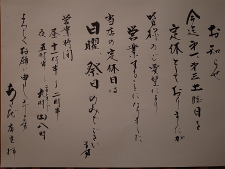 お知らせ
今迄第一第三土曜日を
定休としておりましたが
皆様のご要望により
営業することになりました
当店の定休日は
日曜祭日のみでございます
営業時間
昼 十一時半~二時半
夜 五時半~
よろしくお願い申し上げます